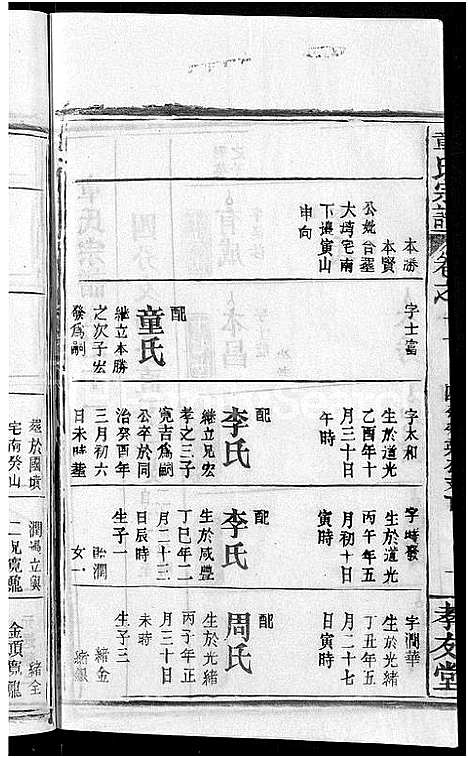 氏宗譜
卷之
孝友堂
本勝
本賢
公妣合墓
大塆宅南
下邊寅山
申向
字士富
配
童氏
繼立本勝
之次子宏
發為嗣
字太和
生於道光
乙酉年十
月三十日
午時
配
李氏
繼立兄宏
孝之三子
寬吉為嗣
公卒於同
治癸酉年
三月初六
日未時葬
生於道光
丙午年五
月初十日
寅時
配
李氏
生於咸豐
丁巳年二
月二十三
日辰時
生子一
潤
女一
字潤華
生於光緒
丁丑年五
月二十七
日寅時
配
周氏
生於光緒
丙子年正
月三十日
未時
生子三
緒金
緒銀
宅南癸山
潤
立興
緒全
金頂
龍